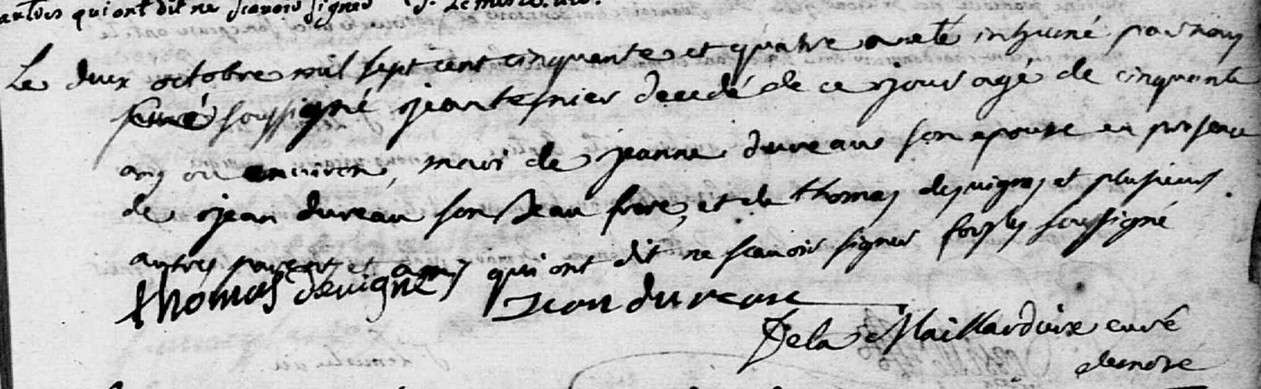 autres qui ont dit ne scavoir signer
Le deux octobre mil sept cent cinquante et quatre a eté inhumé par nous
curé soussigné jean tesnier decedé de ce jour agé de cinquante
ans ou environ, mari de jeanne dureau son epouse en presence
de jean dureau son beau frere, et de thomas desvignes et plusieurs
autres parens et amis qui ont dit ne scavoir signer fors les soussigné
thomas devignes Jean dureau
De la Maillardiere curé